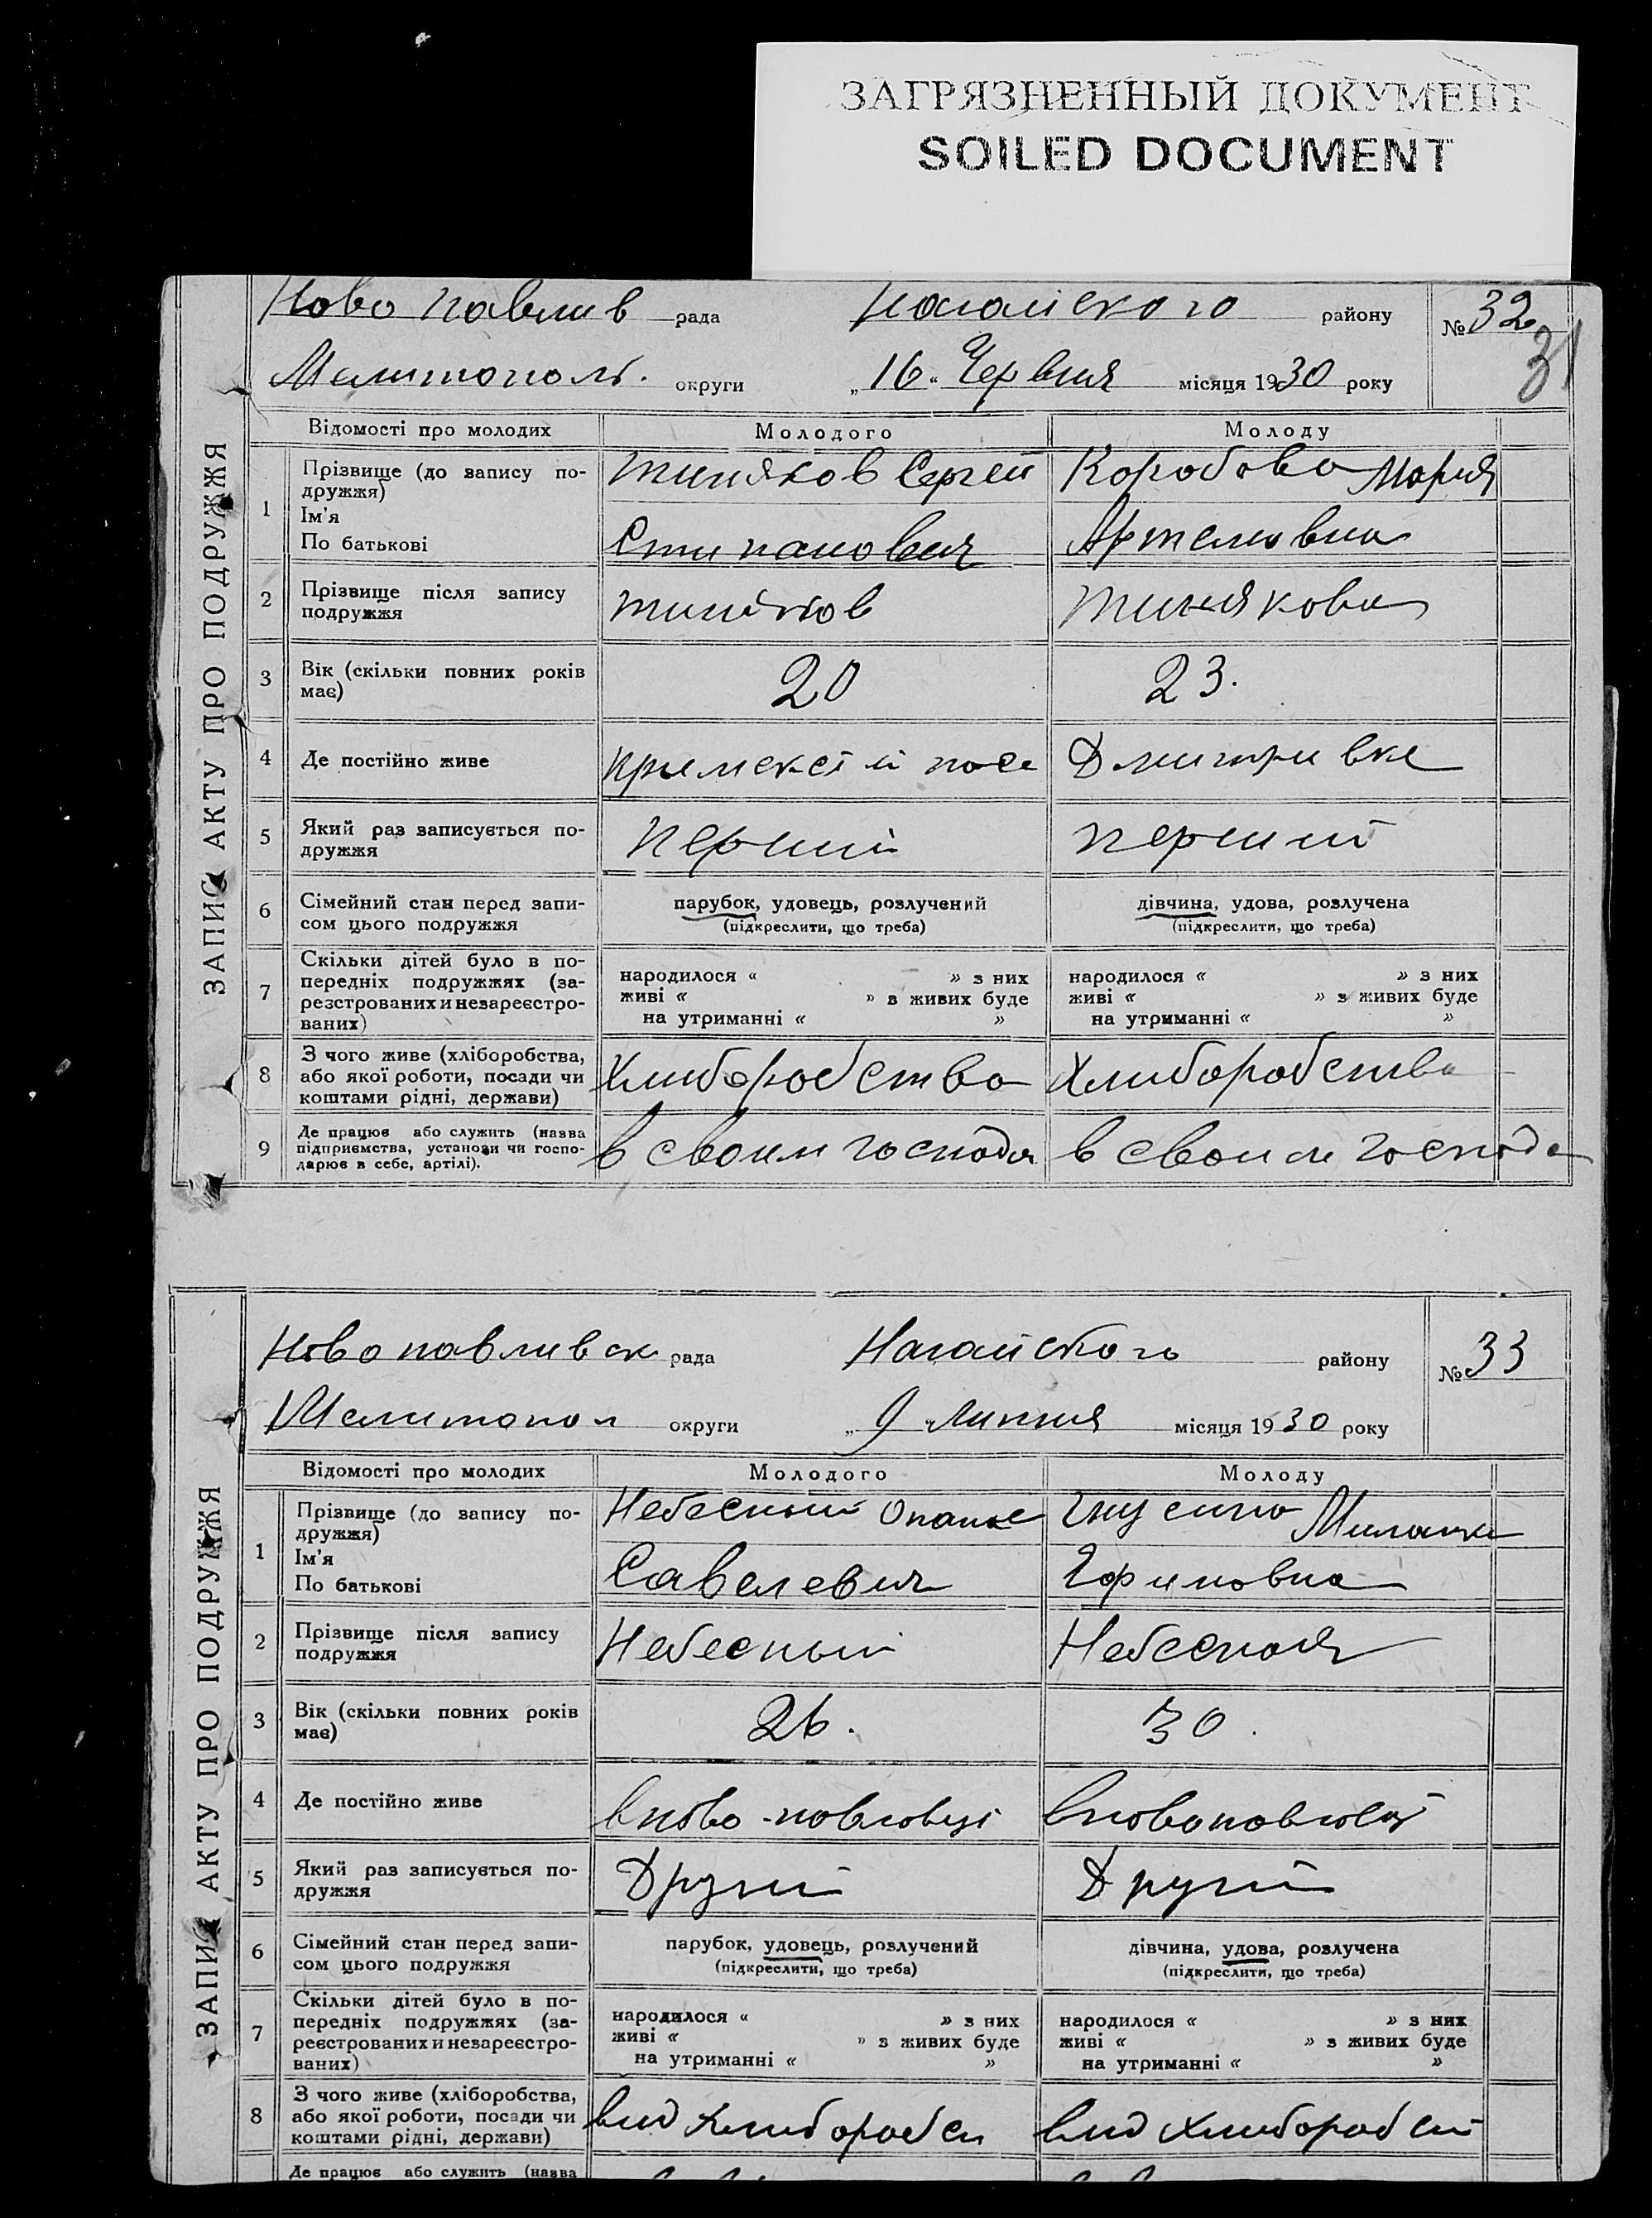 ЗАГРЯЗНЕННЫЙ ДОКУМЕНТ
SOILED DOCUMENT
Ново Павлив рада Нагайского району № 32
31
Мелитополь. округи „16“ Червня місяця 1930 року
ЗАПИС АКТУ ПРО ПОДРУЖЖЯ
Відомості про молодих Молодого Молоду
1 Прізвище (до запису по-дружжя) Тиняков Сергей Коробова Мария
Ім'я
По батькові Стипанович Артемовна
2 Прізвище після запису подружжя Тиняков Тинякова
3 Вік (скільки повних років має) 20 23.
4 Де постійно живе Дмитривке
5 Який раз записується по-дружжя перший перший
6 Сімейний стан перед запи-сом цього подружжя парубок, удовець, розлучений дівчина, удова, розлучена
(підкреслити, що треба) (підкреслити, що треба)
7 Скільки дітей було в по-передніх подружжях (за-реєстрованих и незареєстро-ваних)
народилося « » з них народилося « » з них
живі « » з живих буде живі « » з живих буде
на утриманні « » на утриманні « »
8 З чого живе (хліборобства, або якої роботи, посади чи коштами рідні, держави) Хлиборобства Хлиборобства
9 Де працює або служить (назва підприємства, установи чи госпо-дарює в себе, артілі). в своим господа в своим господа
Новопавливск рада Нагайского району № 33
Мелитопол округи „9 Липня місяця 1930 року
ЗАПИС АКТУ ПРО ПОДРУЖЖЯ
Відомості про молодих Молодого Молоду
1 Прізвище (до запису по-дружжя) Небесный Опанас
Ім'я
По батькові Савелевич
2 Прізвище після запису подружжя Небесный Небесная
3 Вік (скільки повних років має) 26. 30.
4 Де постійно живе в ново-повловці в новоповловці
5 Який раз записується по-дружжя Другий Другий
6 Сімейний стан перед запи-сом цього подружжя парубок, удовець, розлучений дівчина, удова, розлучена
(підкреслити, що треба) (підкреслити, що треба)
7 Скільки дітей було в по-передніх подружжях (за-реєстрованих и незареєстро-ваних)
народилося « » з них народилося « » з них
живі « » з живих буде живі « » з живих буде
на утриманні « » на утриманні « »
8 З чого живе (хліборобства, або якої роботи, посади чи коштами рідні, держави) вид Хлиборобст вид хлиборобст
Де працює або служить (назва